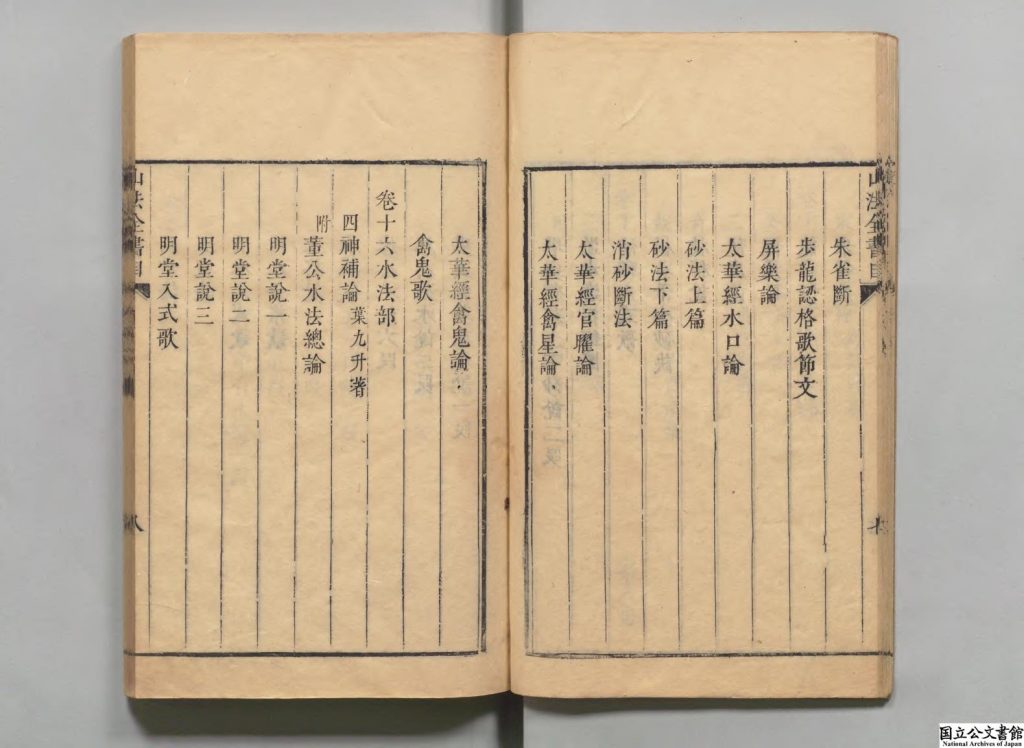 山法全書目
朱雀斷
步龍認格歌節文
屏樂論
太華經水口論
砂法上篇
砂法下篇
消砂斷法
太華經官曜論
太華經禽星論
太華經禽鬼論
禽鬼歌
卷十六水法部
四神補論 葉九升著
附 董公水法總論
明堂說一
明堂說二
明堂說三
明堂入式歌
山法全書目
八
国立公文書館
National Archives of Japan